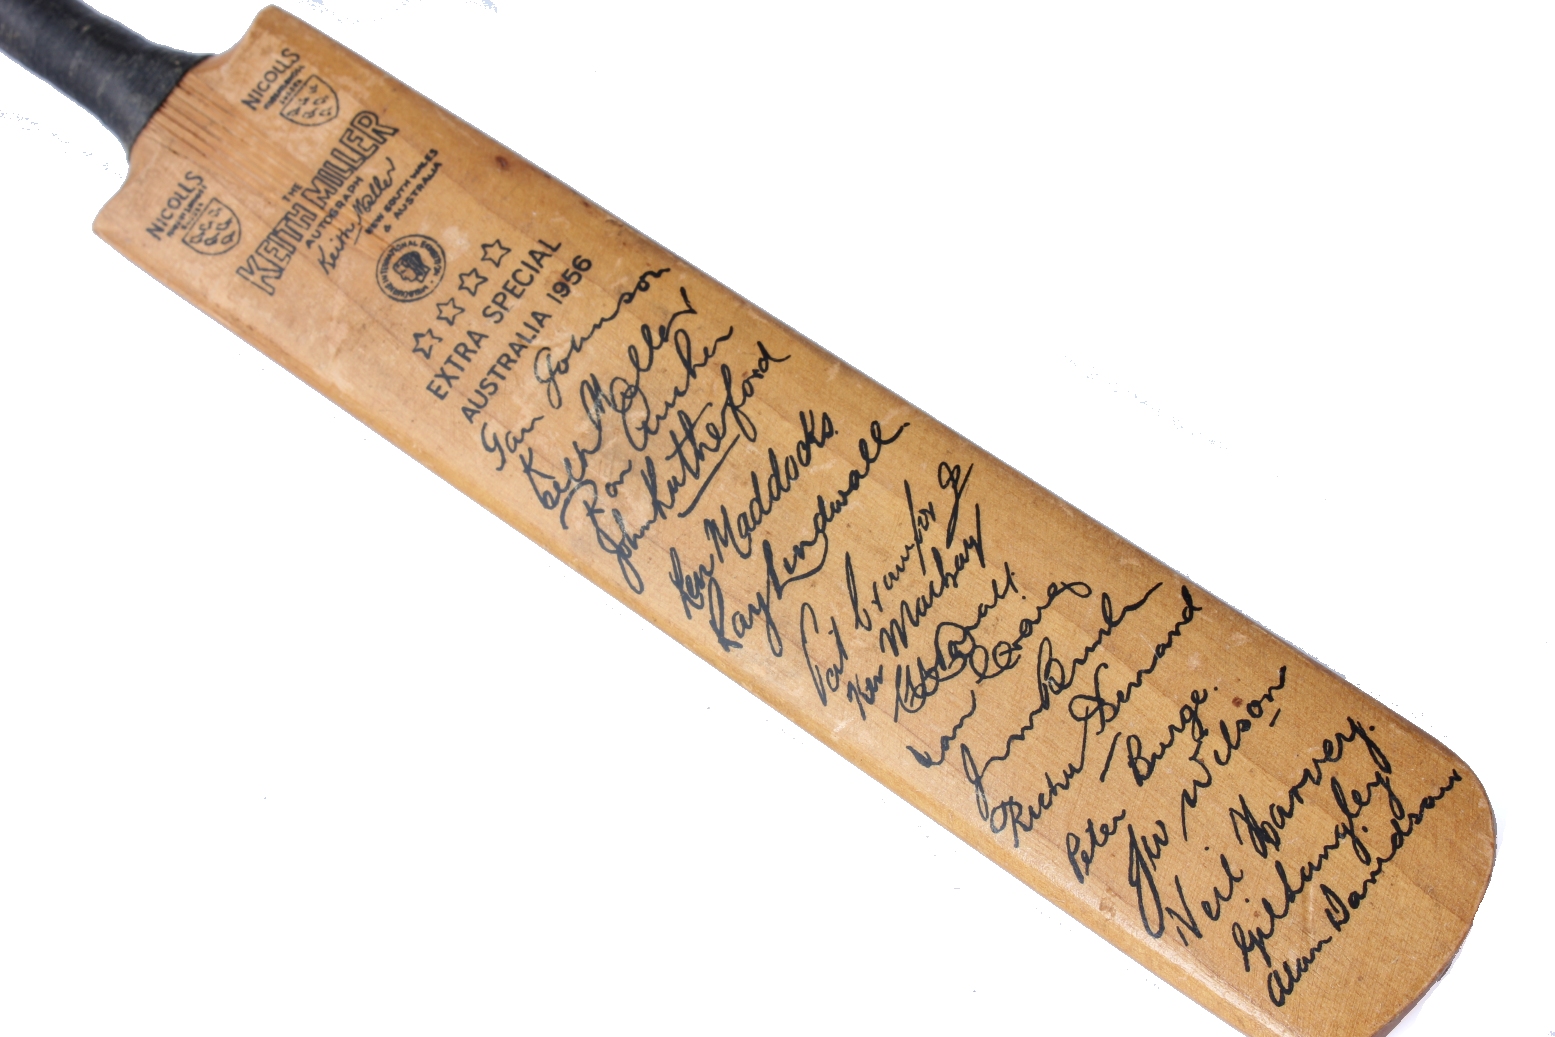 NICOLLS
NICOLLS
THE
KEITH MILLER
AUTOGRAPH
Keith Miller
NEW SOUTH WALES
& AUSTRALIA
EXTRA SPECIAL
AUSTRALIA 1956
Ian Johnson
Keith Miller
Ron Archer
John Rutherford
Len Maddocks.
Ray Lindwall.
Pat Crawford
Ken Mackay
Ian Craig
Jim Burke
Richie Benaud
Peter Burge.
JW Wilson
Neil Harvey.
Gil Langley
Alan Davidson